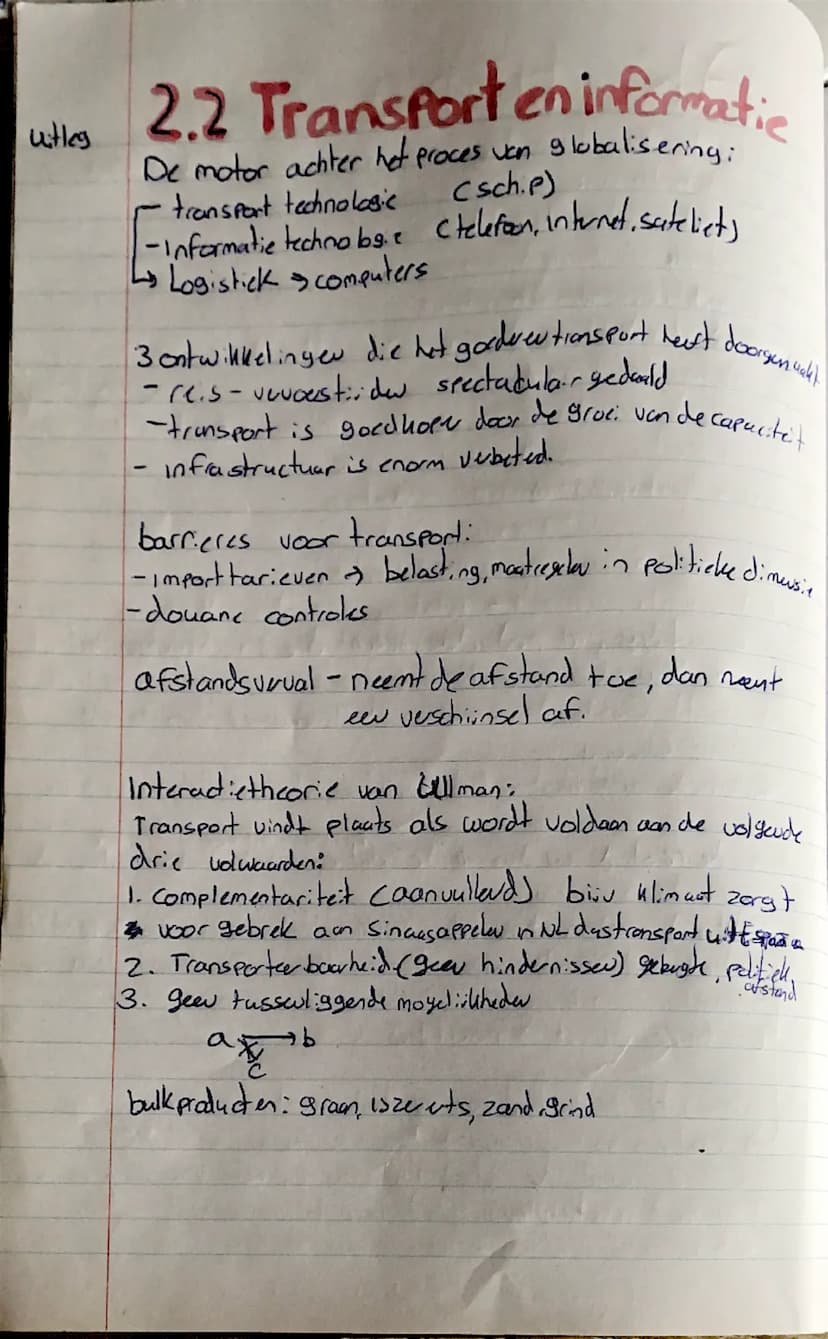 2.2 Transport en informatie
uitleg
De motor achter het proces van globalisering:
- transport technologie (schip)
- Informatie technologie (telefoon, internet, sateliet)
↳ Logistiek → computers
3 ontwikkelingen die het goederentransport heeft doorgemaakt
- reis- vervoerstijden spectaculair gedaald
- transport is goedkoper door de groei van de capaciteit
- infrastructuur is enorm verbeterd.
barrieres voor transport:
- import tarieven → belasting, maatregelen in politieke dimensie
- douane controles
afstandsverval - neemt de afstand toe, dan neemt
een verschijnsel af.
Interactietheorie van Ullman:
Transport vindt plaats als wordt voldaan aan de volgende
drie volwaarden:
1. Complementariteit (aanvullend) bijv klimaat zorgt
voor gebrek aan sinaasappelen in NL dus transport uit
2. Transporteerbaarheid (geen hindernissen) gebergte, politiek
afstand
3. geen tussenliggende mogelijkheden
a → b
c
bulkproducten: graan, ijzererts, zand, grind